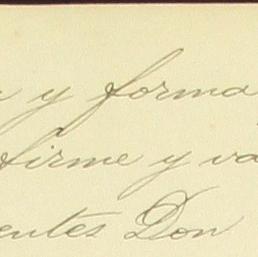 y forma
firme y va
entes Don